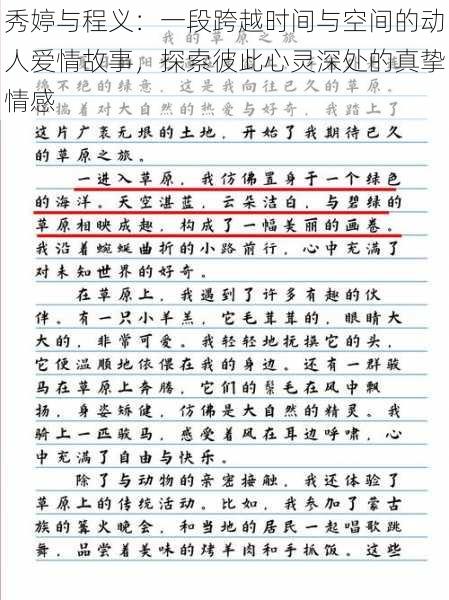 秀婷与程义：一段跨越时间与空间的动
人爱情故事，探索彼此心灵深处的真挚
情感
我的草原之旅
绵不绝的绿意，是我向往已久的草原。
揣着对大自然的热爱与好奇，我踏上了
这片广袤无垠的土地，开始了我期待已久
的草原之旅。
一进入草原，我仿佛置身于一个绿色
的海洋。天空湛蓝，云朵洁白，与碧绿的
草原相映成趣，构成了一幅美丽的画卷。
我沿着蜿蜒曲折的小路前行，心中充满了
对未知世界的好奇。
在草原上，我遇到了许多有趣的伙
伴。有一只小羊羔，它毛茸茸的，眼睛大
大的，非常可爱。我轻轻地抚摸它的头，
它便温顺地依偎在我的身边。还有一群骏
马在草原上奔腾，它们的鬃毛在风中飘
扬，身姿矫健，仿佛是大自然的精灵。我
骑上一匹骏马，感受着风在耳边呼啸，心
中充满了自由与快乐。
除了与动物的亲密接触，我还体验了
草原上的传统活动。比如，我参加了蒙古
族的篝火晚会，和当地的居民一起唱歌跳
舞，品尝着美味的烤羊肉和手抓饭。这些